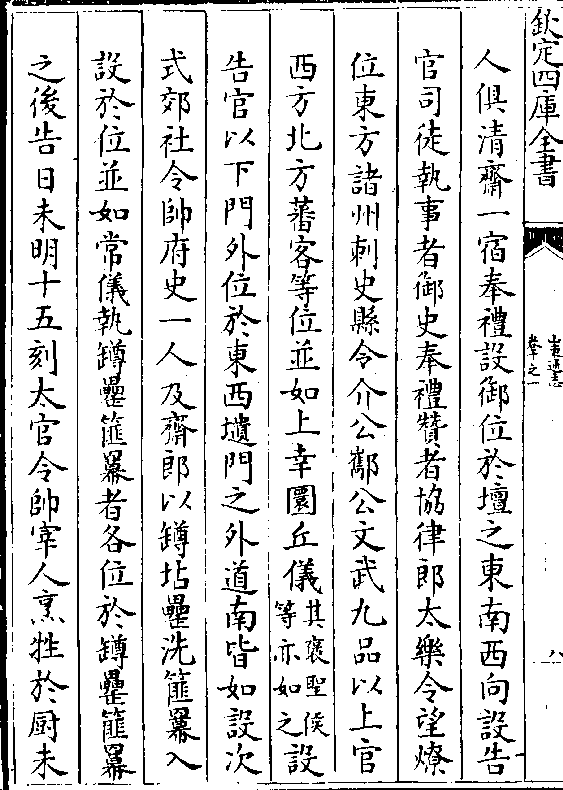 欽定四庫全書
人俱清齋一宿奉禮設御位於壇之東南西向設告
官司徒執事者御史奉禮贊者協律郎太樂令望燎
位東方諸州刺史縣令介公酅公文武九品以上官
西方北方蕃客等位並如上辛圜丘儀其褒聖侯等亦如之設
告官以下門外位於東西壝門之外道南皆如設次
式郊社令帥府史一人及齋郎以罇坫罍洗篚羃入
設於位並如常儀執罇罍篚羃者各位於罇罍篚羃
之後告日未明十五刻太官令帥宰人烹牲於厨未
八